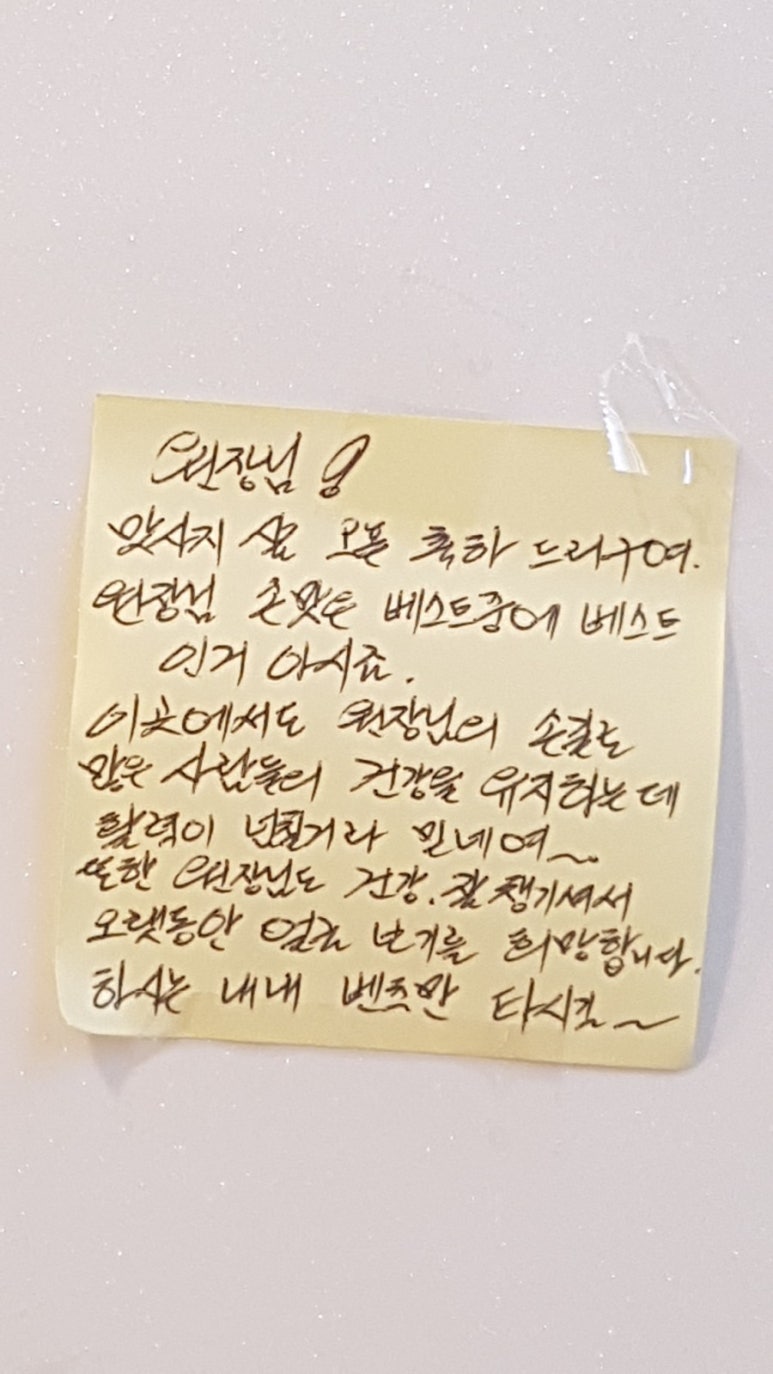 원장님!
맛사지 샵 오픈 축하 드리구여.
원장님 손맛은 베스트중에 베스트
인거 아시죠.
이곳에서도 원장님의 손길로
많은 사람들의 건강을 유지하는데
활력이 넘칠거라 믿네여~.
또한 원장님도 건강.잘 챙기셔서
오랫동안 얼굴 보기를 희망합니다.
하시는 내내 벤츠만 타시길~